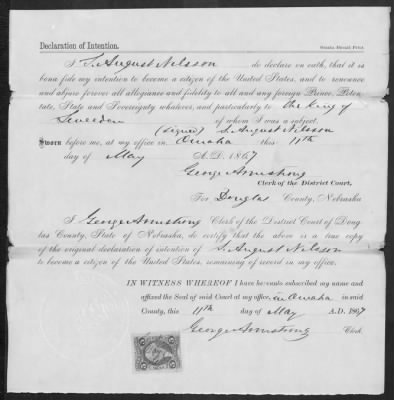 Declaration of Intention.
Omaha Herald Print
I S. August Nilsson do declare on oath, that it is
bona fide my intention to become a citizen of the United States, and to renounce
and abjure forever all allegiance and fidelity to all and any foreign Prince, Poten
tate, State and Sovereignty whatever, and particularly to the King of
Sweeden of whom I was a subject.
(signed) S. August Nilsson
Sworn before me, at my office in Omaha this 11th
day of May A.D. 1867
George Armstrong
Clerk of the District Court,
For Douglas County, Nebraska
I George Armstrong Clerk of the District Court of Doug
las County, State of Nebraska, do certify that the above is a true copy
of the original declaration of intention of S. August Nilsson
to become a citizen of the United States, remaining of record in my office.
IN WITNESS WHEREOF I have hereunto subscribed my name and
affixed the Seal of said Court at my office, in Omaha in said
County, this 11th day of May A.D. 1867
George Armstrong Clerk.